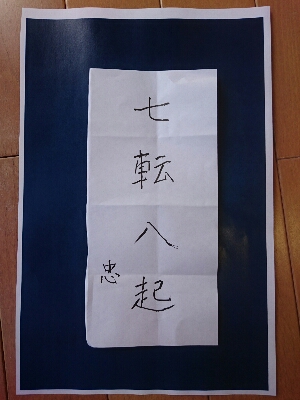 七転八起
忠